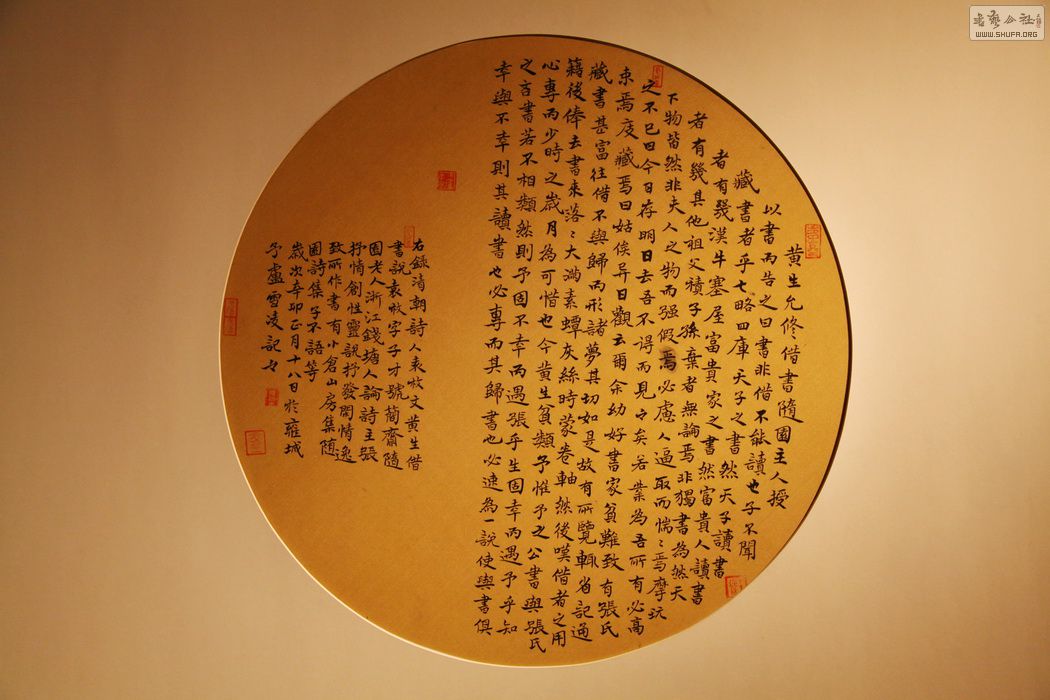 黄生允修借書隨園主人授
以書而告之曰書非借不能讀也子不聞
藏書者乎七略四庫天子之書然天子讀書
者有幾漢牛塞屋富貴家之書然富貴人讀書
者有幾其他祖父積子孫棄者無論焉非獨書為然天
下物皆然非夫人之物而强假焉必慮人逼取而惴々焉摩玩
之不已曰今日存明日去吾不得而見之矣若業為吾所有必高
束焉庋藏焉曰姑俟异日觀云爾余幼好書家貧難致有張氏
藏書甚富往借不與歸而形諸夢其切如是故有所覽輒省記通
籍後俸去書來落々大滿素蟫灰絲時蒙卷軸然後嘆借者之用
心專而少時之歲月為可惜也今黄生貧類予惟予之公書與張氏
之吝書若不相類然則予固不幸而遇張乎生固幸而遇予乎知
幸與不幸則其讀書也必專而其歸書也必速為一說使與書俱
右錄清朝詩人袁枚文黄生借
書說袁枚字子才號簡齋隨
園老人浙江錢塘人論詩主張
抒情創性靈說抒發閒情逸
致所作書有小倉山房集随
園詩集子不語等
歲次辛卯正月十八日於雍城
予盧雪凌記
書藝公社
WWW.SHUFA.ORG